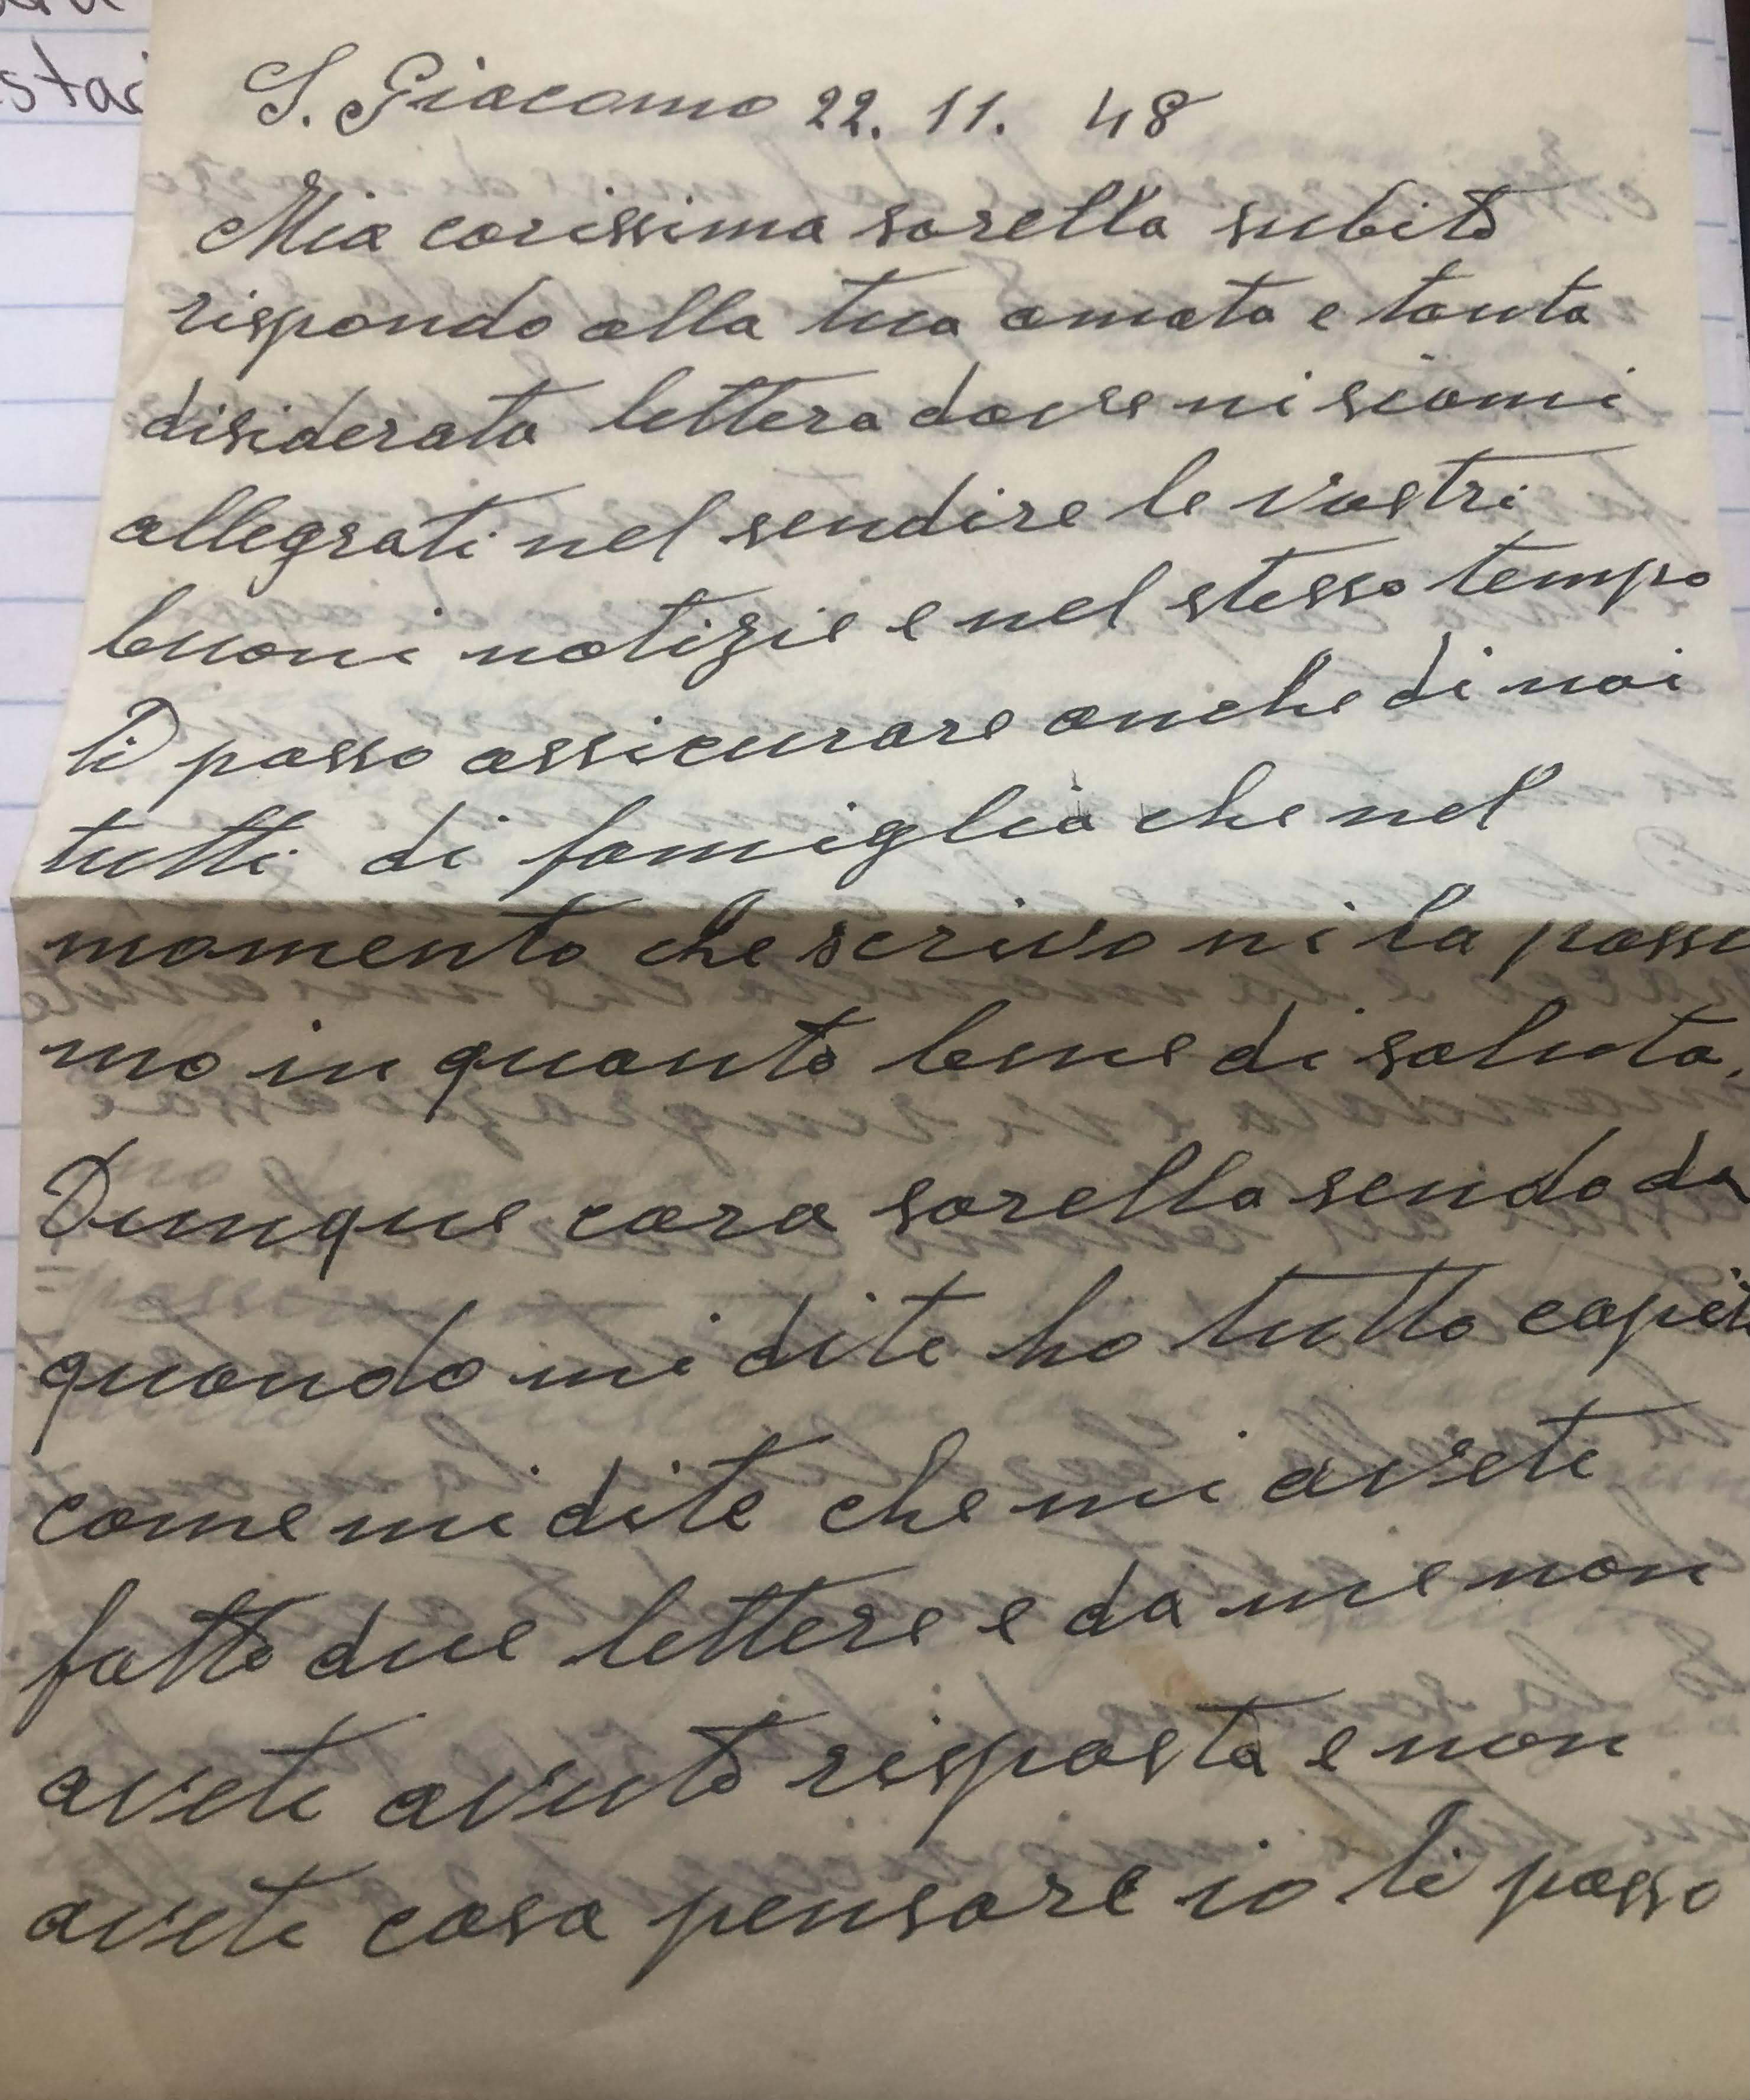 S. Giacomo 22. 11. 48
Mia carissima sorella subito
rispondo alla tua amata e tanta
disiderata lettera dove ni siami
allegrati nel sendire le vostri
buoni notizie e nel stesso tempo
ti posso assicurare anche di noi
tutti di famiglia che nel
momento che scrivo ni la passia
mo in quanto bene di saluta.
Dunque cara sorella sendo da
quando mi dite ho tutto capito
come mi dite che mi aveti
fatto due lettere e da me non
aveti avuto risposta e non
aveti cosa pensare io ti posso